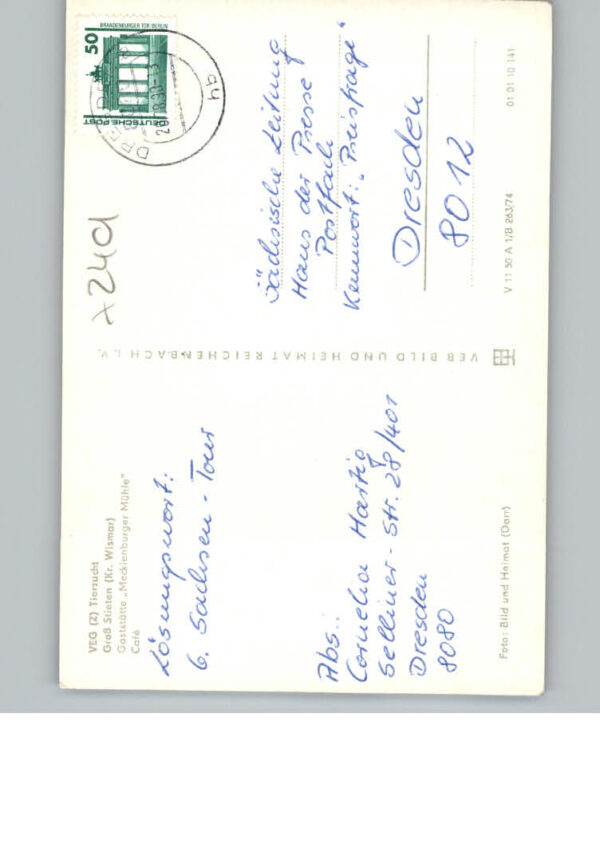 VEG (Z) Tierzucht
Groß Stieten (Kr. Wismar)
Gaststätte „Mecklenburger Mühle"
Café
Lösungswort:
6. Sachsen-Tour
Abs.:
Cornelia Hartig
Selliner-Str. 28/401
Dresden
8080
Foto: Bild und Heimat (Darr)
VEB BILD UND HEIMAT REICHENBACH i. V.
BRANDENBURGER TOR BERLIN
50
DEUTSCHE POST
hb
Sächsische Zeitung
Haus der Presse
Postfach
Kennwort: „Preisfrage"
Dresden
8012
V 11 50 A 1/B 263/74
01 01 10 141